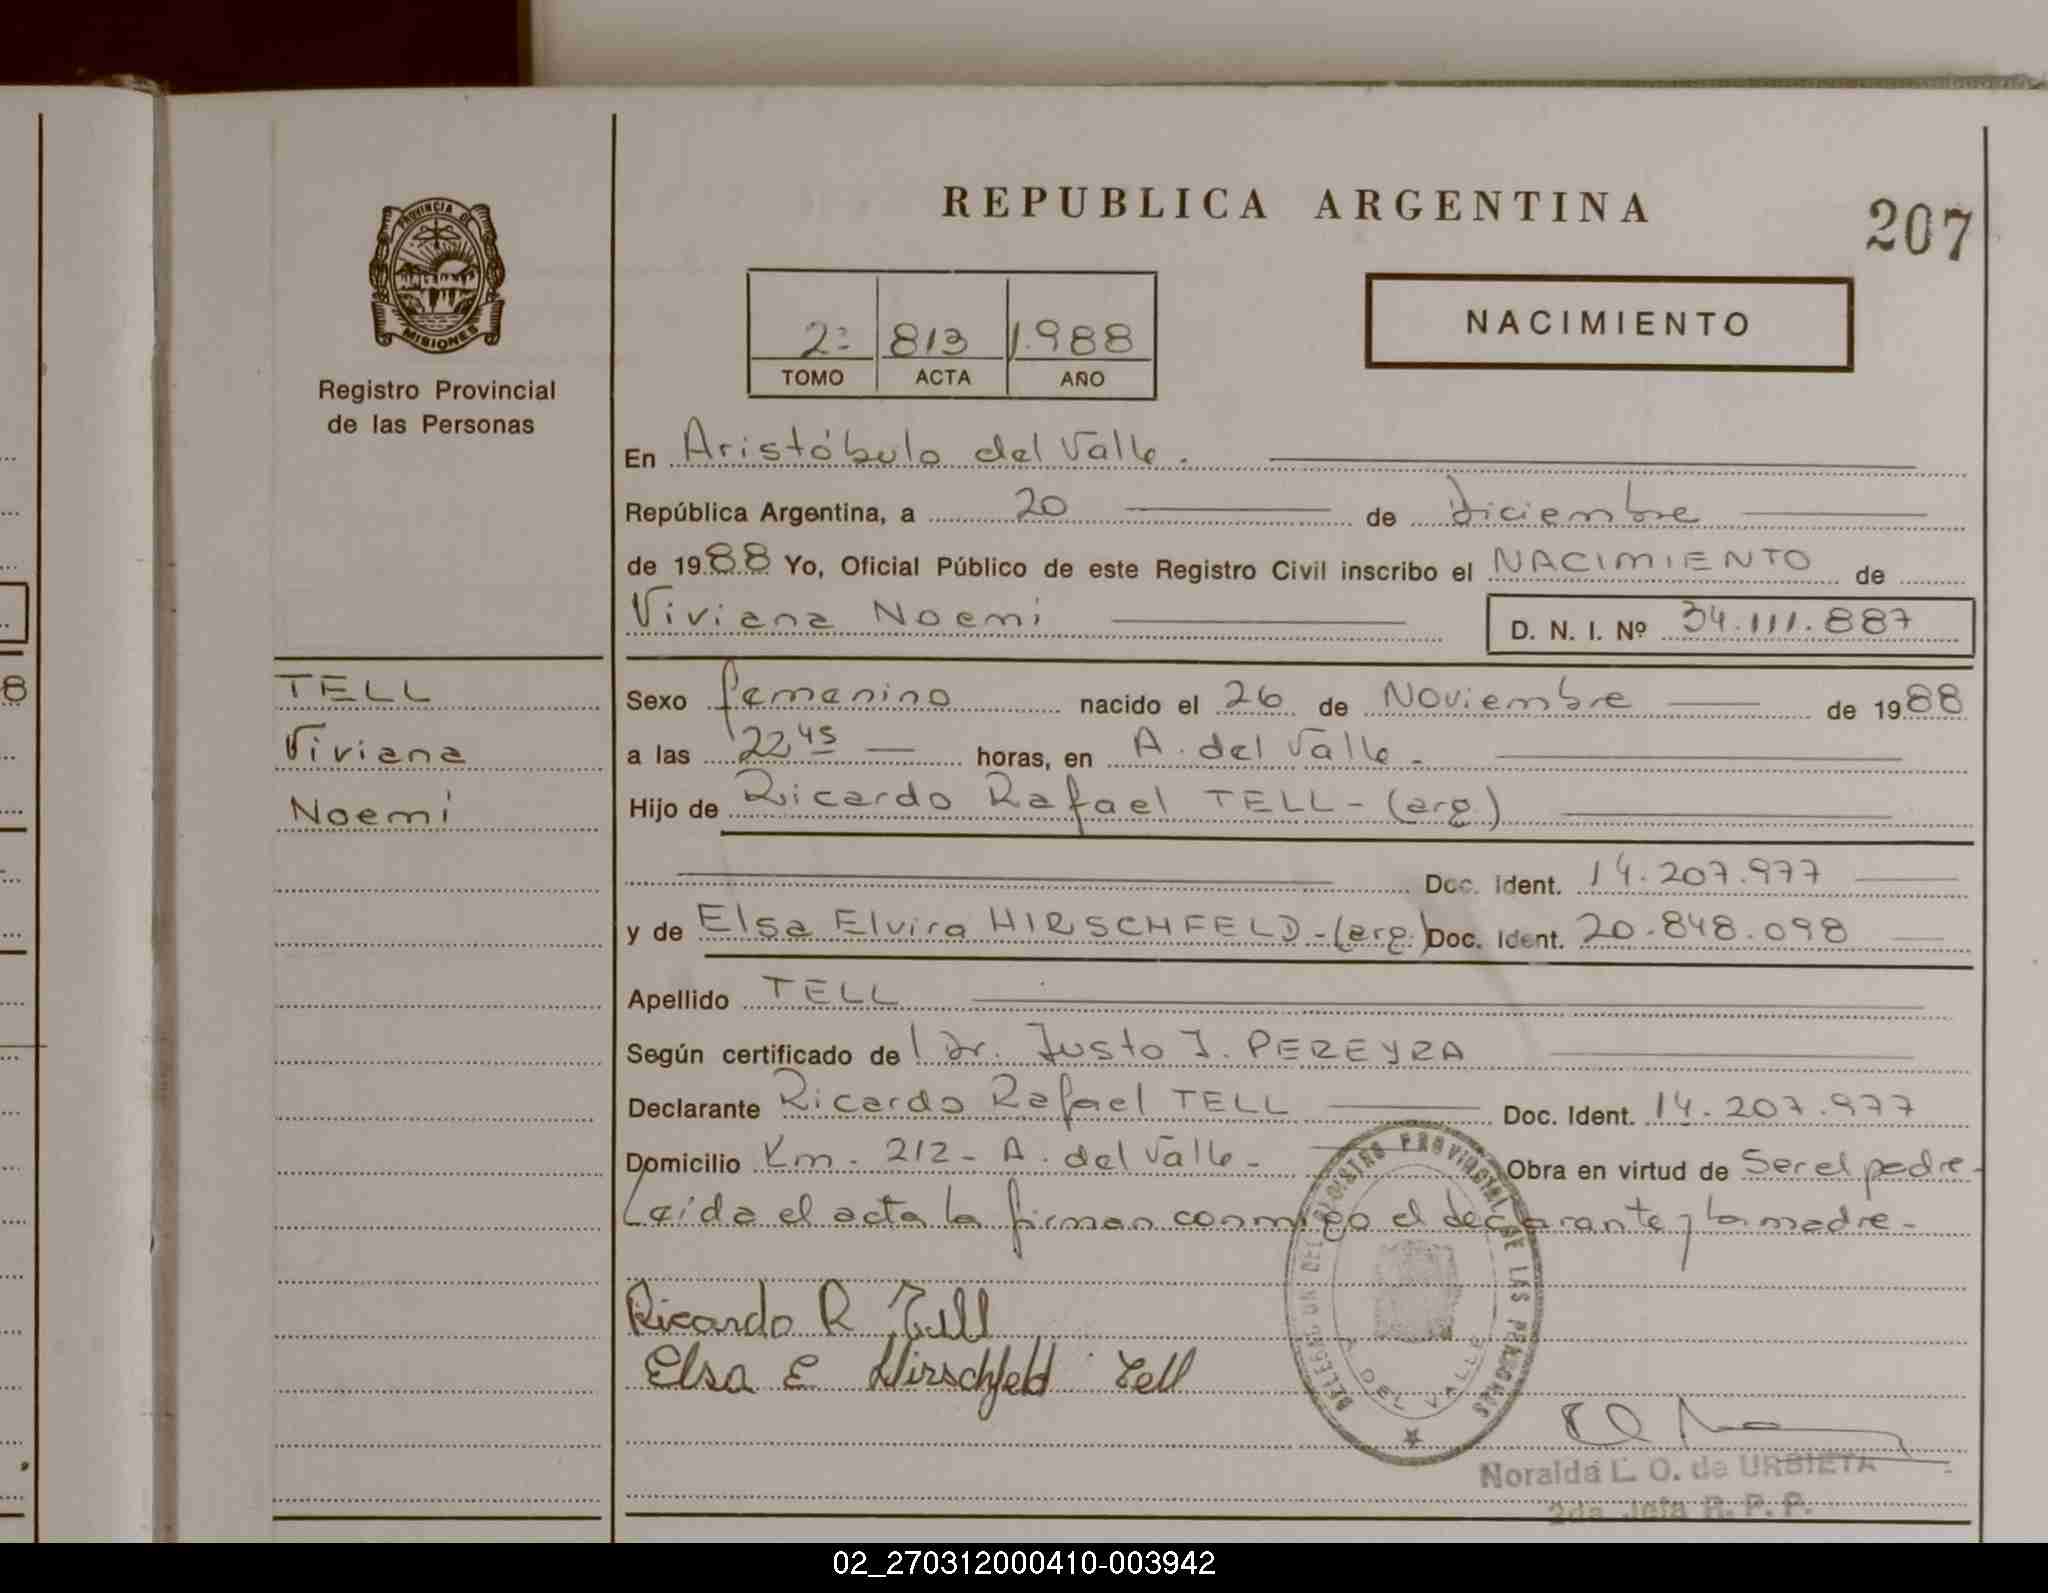 REPUBLICA ARGENTINA
207
PROVINCIA DE
MISIONES
Registro Provincial
de las Personas
2º 813 1.988
TOMO ACTA AÑO
NACIMIENTO
En Aristóbulo del Valle.
República Argentina, a 20 de Diciembre
de 1988 Yo, Oficial Público de este Registro Civil inscribo el NACIMIENTO de
Viviana Noemí D. N. I. Nº 34.111.887
8
TELL
Viviana
Noemí
Sexo femenino nacido el 26 de Noviembre de 1988
a las 22 45 horas, en A. del Valle.
Hijo de Ricardo Rafael TELL - (arg.)
Doc. Ident. 14.207.977
y de Elsa Elvira HIRSCHFELD - (arg.) Doc. Ident. 20.848.098
Apellido TELL
Según certificado de Dr. Justo J. PEREYRA
Declarante Ricardo Rafael TELL Doc. Ident. 14.207.977
Domicilio Km. 212 - A. del Valle - Obra en virtud de Ser el padre -
Leída el acta la firman conmigo el declarante y la madre -
Ricardo R Tell
Elsa E Hirschfeld Tell
REGISTRO PROVINCIAL DE LAS PERSONAS
A DEL VALLE
Noralda L. O. de URBIETA
2da Jefa R. P. P.
02_270312000410-003942